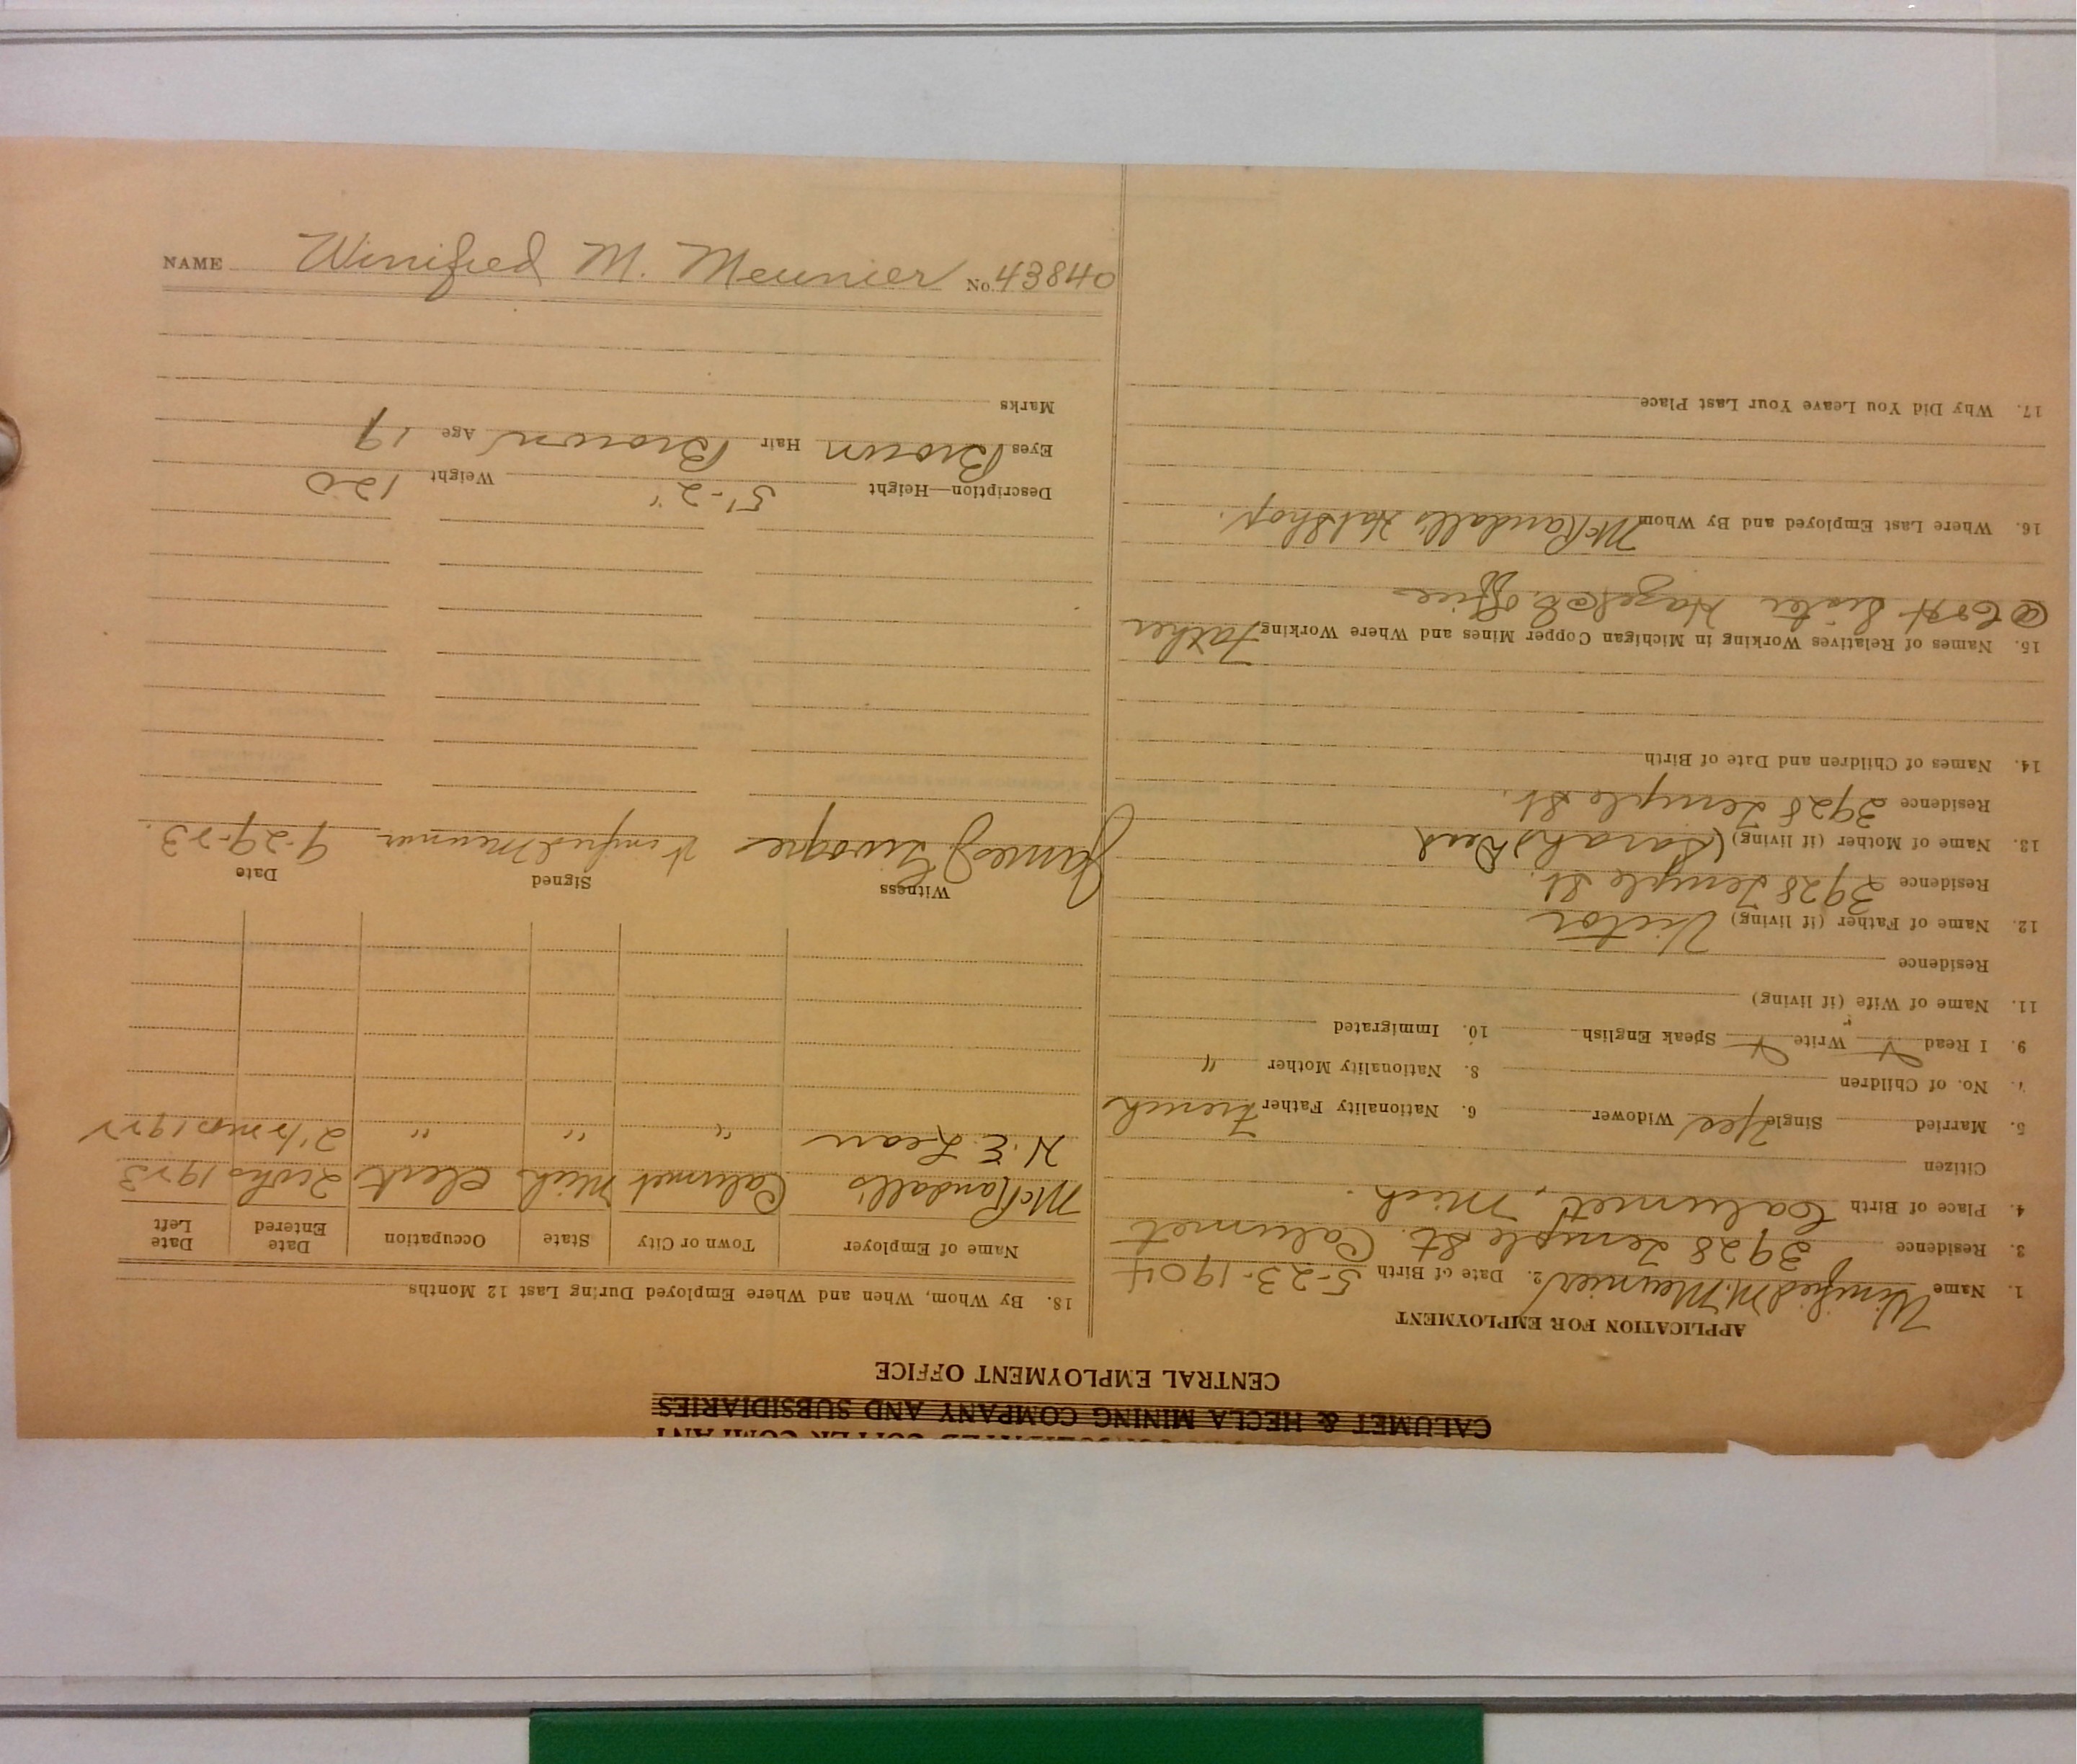 CALUMET & HECLA MINING COMPANY AND SUBSIDIARIES
CENTRAL EMPLOYMENT OFFICE
APPLICATION FOR EMPLOYMENT
1. Name Winifred M. Meunier 2. Date of Birth 5-23-1904
3. Residence 3928 Temple St. Calumet
4. Place of Birth Calumet, Mich.
Citizen
5. Married Single Yes Widower 6. Nationality Father French
7. No. of Children 8. Nationality Mother "
9. I Read Write Speak English 10. Immigrated
11. Name of Wife (if living)
Residence
12. Name of Father (if living) Victor
Residence 3928 Temple St.
13. Name of Mother (if living) (Sarah) Dead
Residence 3928 Temple St.
14. Names of Children and Date of Birth
15. Names of Relatives Working in Michigan Copper Mines and Where Working Father
@ C&H Sister Hazel @ E. office
16. Where Last Employed and By Whom McRandall's Hat Shop.
17. Why Did You Leave Your Last Place
18. By Whom, When and Where Employed During Last 12 Months
Name of Employer Town or City State Occupation Date Entered Date Left
McRandall's Calumet Mich Clerk 1923
N. E. Lean " " " 2 1/2 mos 1922
Witness Signed Date
James J. Winifred Meunier 9-29-23.
Description—Height 5'-2" Weight 120
Eyes Brown Hair Brown Age 19
Marks
NAME Winifred M. Meunier No. 43840